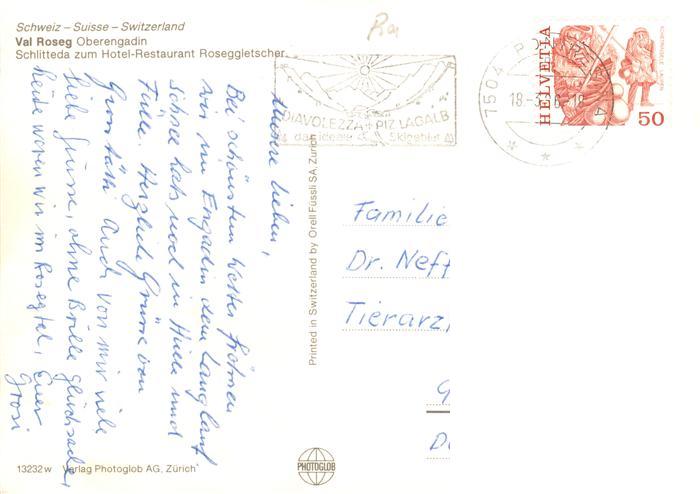 Schweiz – Suisse – Switzerland
Val Roseg Oberengadin
Schlitteda zum Hotel-Restaurant Roseggletscher
Unsere Lieben,
Bei schönstem Wetter frönen
wir im Engadin dem Langlauf
Schnee hats noch in Hülle und
Fülle. Herzliche Grüsse von
Auch von mir viele
liebe Grüsse, ohne Brille
heute waren wir im Rosegtal, Euer
Grosi
Printed in Switzerland by Orell Füssli SA, Zürich
DIAVOLEZZA + PIZ LAGALB
das ideale Skigebiet
7504 PO
18
HELVETIA
50
Familie
Dr. Neff
Tierarz
G
D
13232w Verlag Photoglob AG, Zürich
PHOTOGLOB